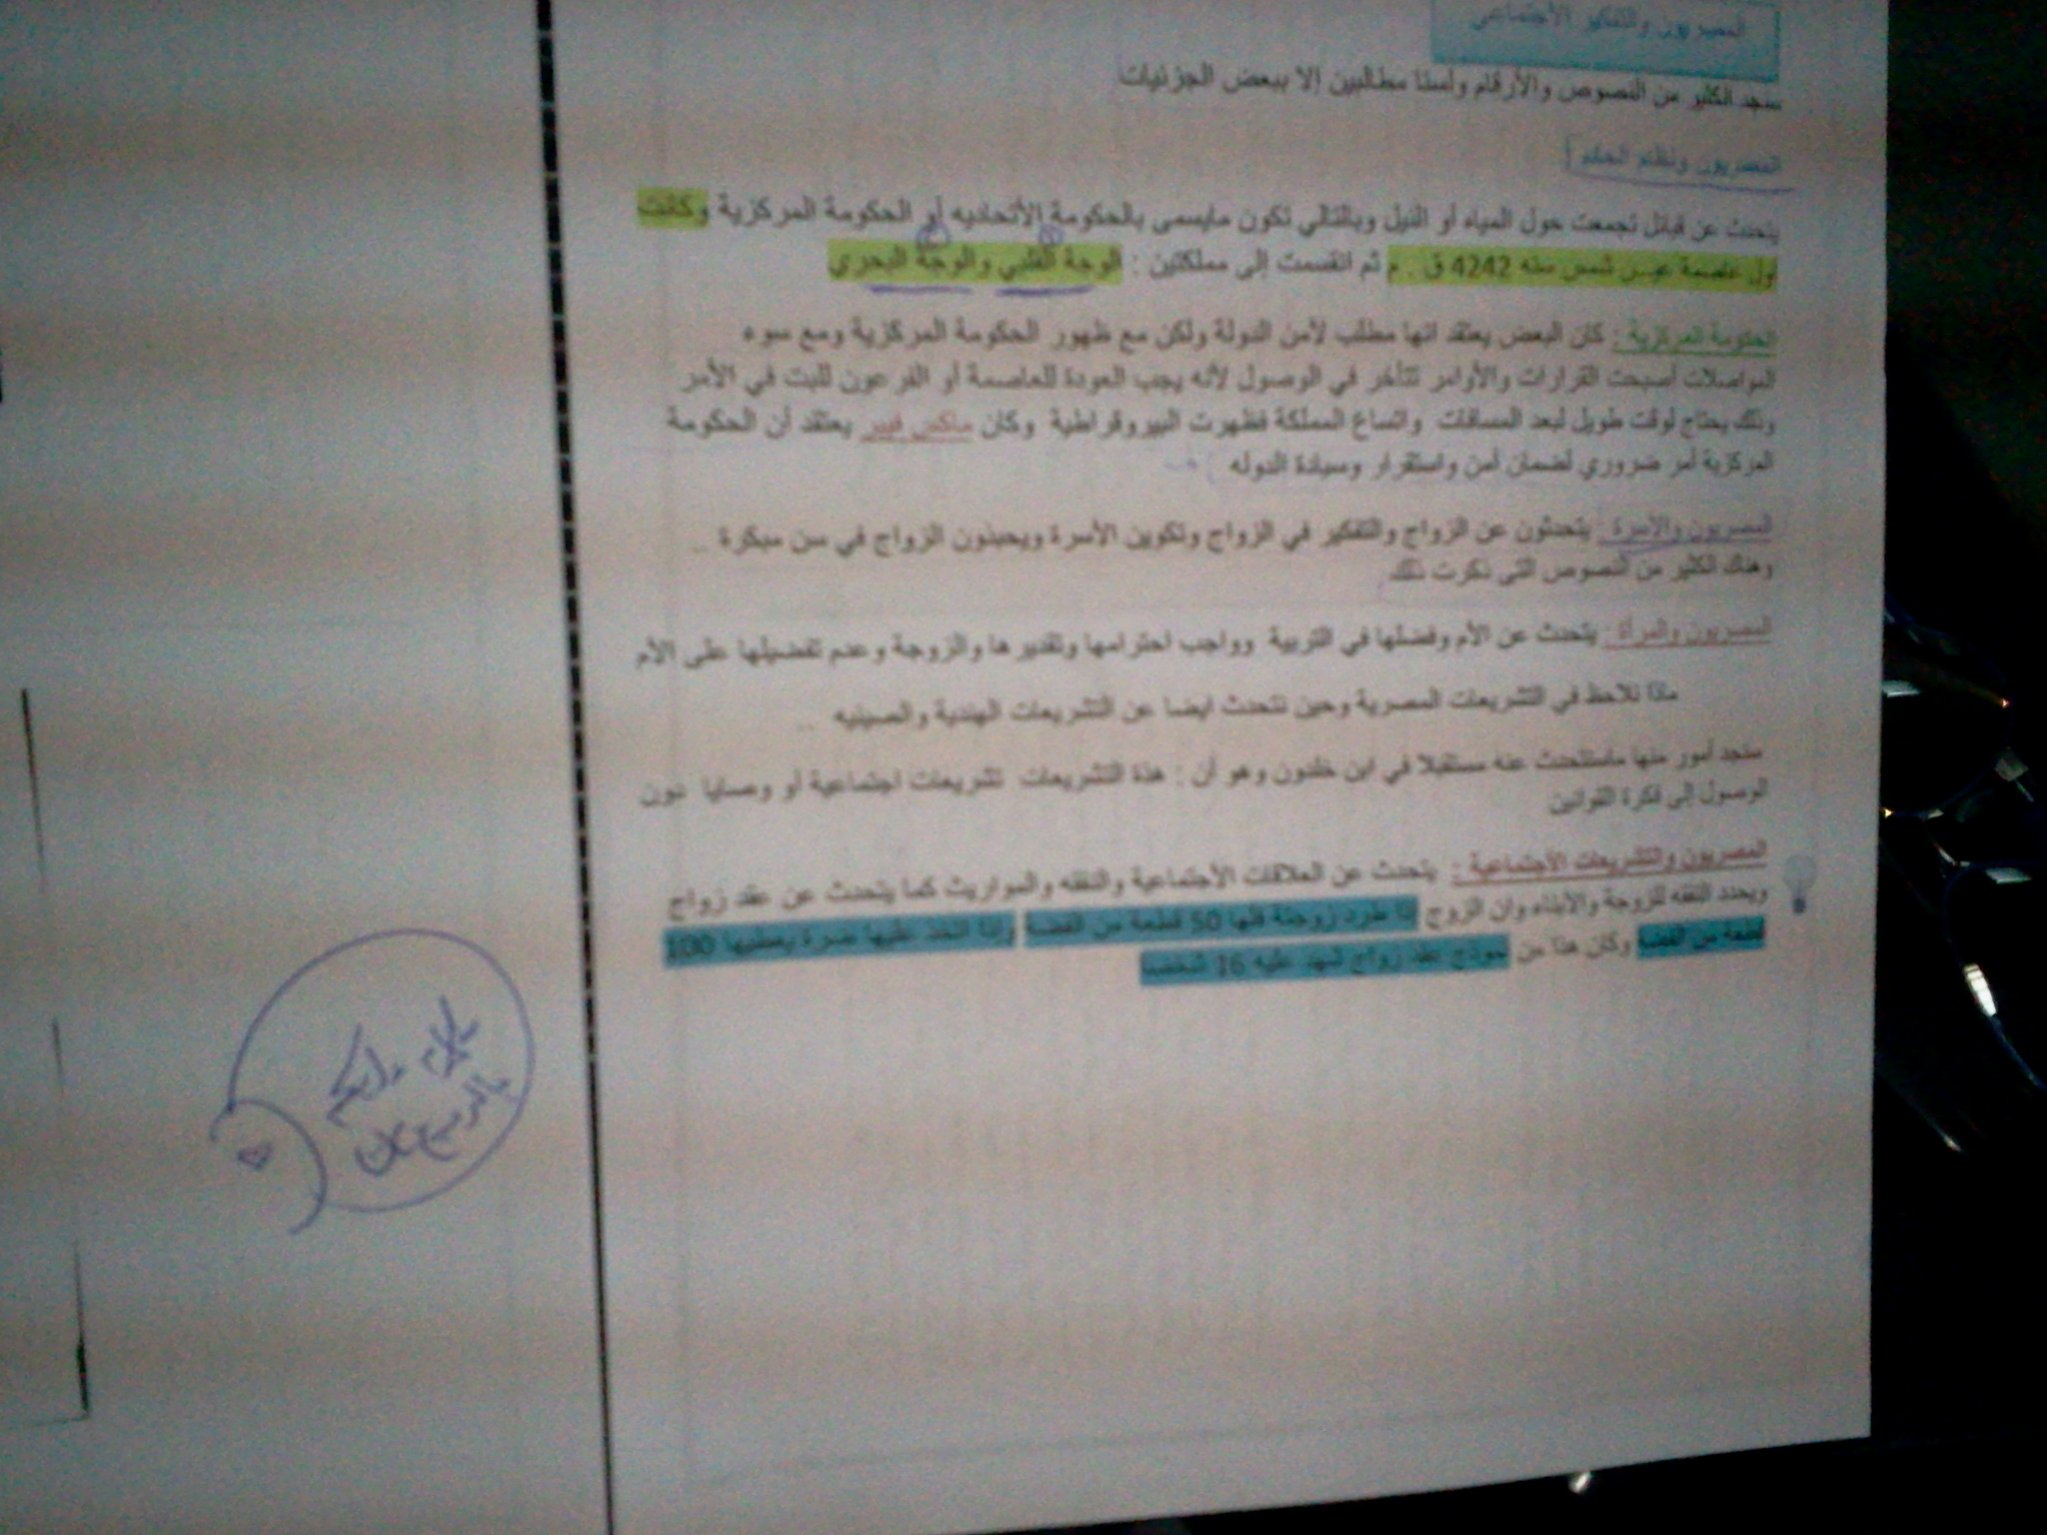 المصريون والتفكير الاجتماعي
سنجد الكثير من النصوص والأرقام ولسنا مطالبين إلا ببعض الجزئيات
المصريون ونظم الحكم
يتحدث عن قبائل تجمعت حول المياه أو النيل وبالتالي تكون مايسمى بالحكومة الأتحاديه أو الحكومة المركزية وكانت
ول عاصمة عين شمس سنه 4242 ق . م ثم انقسمت إلى مملكتين : الوجة القبلي والوجة البحري
الحكومة المركزية : كان البعض يعتقد انها مطلب لأمن الدولة ولكن مع ظهور الحكومة المركزية ومع سوء
المواصلات أصبحت القرارات والأوامر تتأخر في الوصول لأنه يجب العودة للعاصمة أو الفرعون للبت في الأمر
وذلك يحتاج لوقت طويل لبعد المسافات واتساع المملكة فظهرت البيروقراطية وكان ماكس فيبر يعتقد أن الحكومة
المركزية أمر ضروري لضمان أمن واستقرار وسيادة الدوله
المصريون والأسرة : يتحدثون عن الزواج والتفكير في الزواج وتكوين الأسرة ويحبذون الزواج في سن مبكرة ..
وهناك الكثير من النصوص التي ذكرت ذلك
المصريون والمرأة : يتحدث عن الأم وفضلها في التربية وواجب احترامها وتقديرها والزوجة وعدم تفضيلها على الأم
ماذا نلاحظ في التشريعات المصرية وحين نتحدث ايضا عن التشريعات الهندية والصينيه ..
سنجد أمور منها ماسنتحدث عنه مستقبلا في ابن خلدون وهو أن : هذة التشريعات تشريعات اجتماعية أو وصايا دون
الوصول إلى فكرة القوانين
المصريون والتشريعات الأجتماعية : يتحدث عن العلاقات الأجتماعية والنفقه والمواريث كما يتحدث عن عقد زواج
ويحدد النفقه للزوجة والأبناء وان الزوج اذا طرد زوجتة فلها 50 قطعة من الفضة وإذا اتخذ عليها ضرة يعطيها 100
قطعة من الفضة وكان هذا من نموذج عقد زواج شهد عليه 16 شخصا